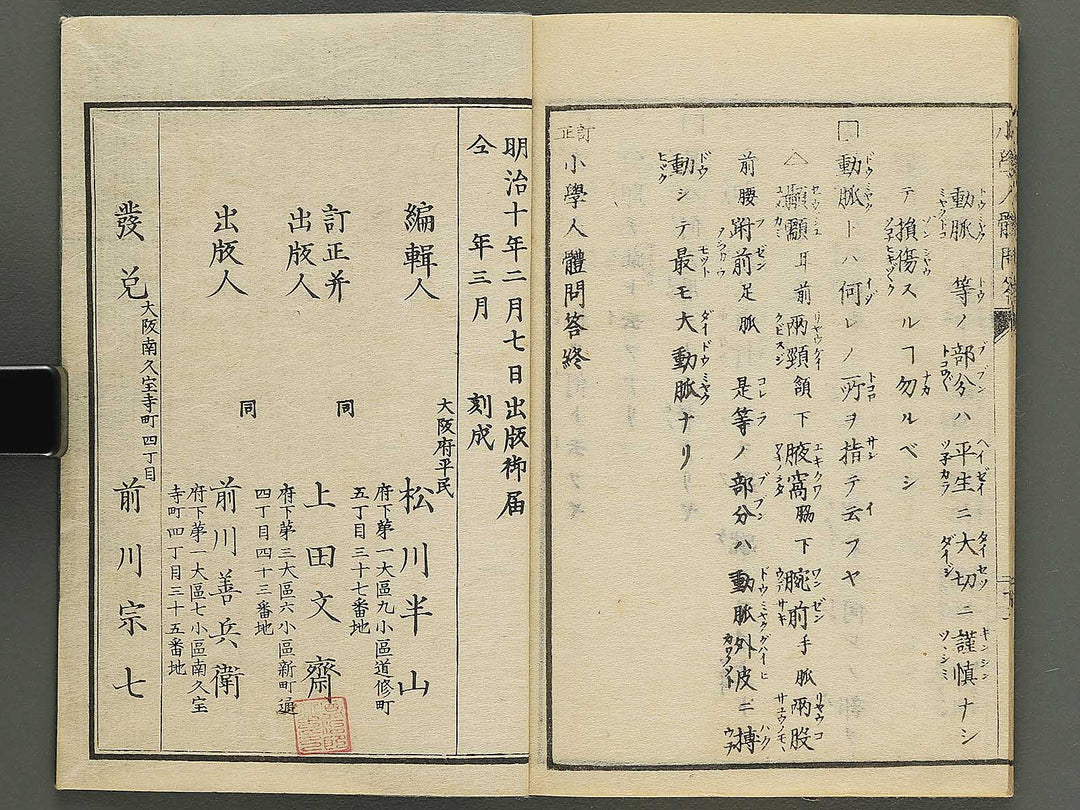 動脈等ノ部分ハ平生ニ大切ニ謹慎ナシ
テ損傷スルヿ勿ルベシ
□動脈トハ何レノ所ヲ指テ云フヤ
△顳顬耳前兩頸頷下腋窩脇下腕前手脈兩股
前腰跗前足脈是等ノ部分ハ動脈外皮ニ搏
動シテ最モ大動脈ナリ
訂正 小學人體問答終
明治十年二月七日出版御届
仝年三月刻成
編輯人 大阪府平民 松川半山
府下第一大區九小區道修町
五丁目三十七番地
訂正并出版人 同 上田文齋
府下第三大區六小區新町通
四丁目四十三番地
出版人 同 前川善兵衛
府下第一大區七小區南久宝
寺町四丁目三十五番地
發兌 大阪南久宝寺町四丁目 前川宗七